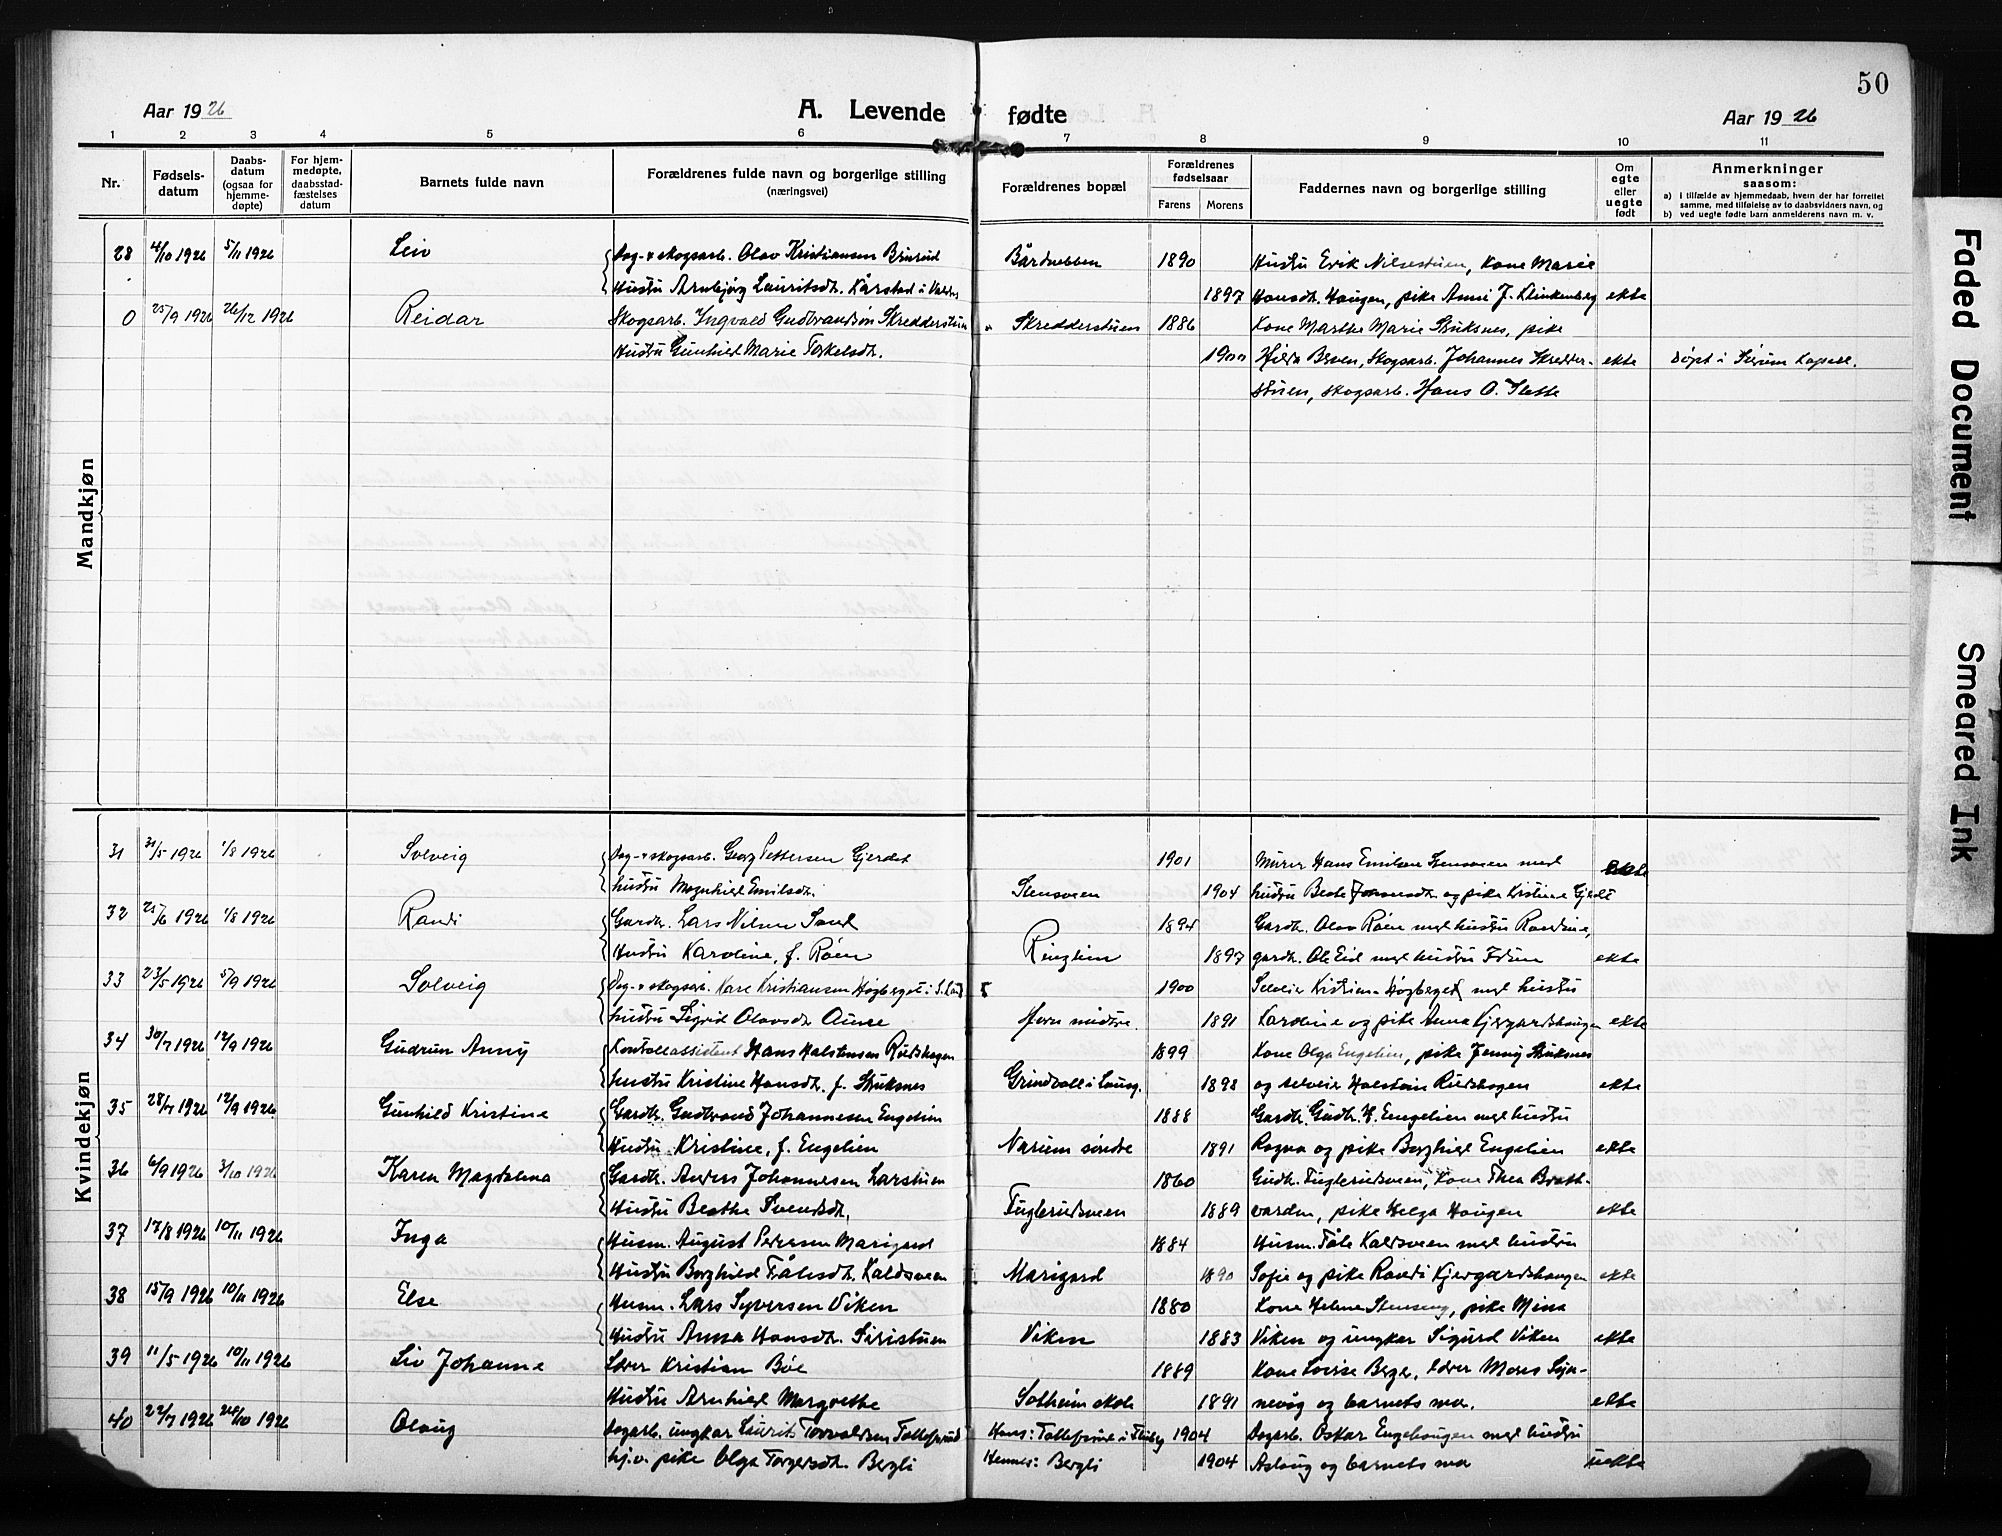 50
Aar 1926
A. Levende fødte
Aar 1926
1 2 3 4 5 6 7 8 9 10 11
Nr.
Fødsels-
datum
Daabs-
datum
(ogsaa for
hjemme-
døpte)
For hjem-
medøpte,
daabsstad-
fæstelses
datum
Barnets fulde navn
Forældrenes fulde navn og borgerlige stilling
(næringsvei)
Forældrenes bopæl
Forældrenes
fødselsaar
Farens Morens
Faddernes navn og borgerlige stilling
Om
egte
eller
uegte
født
Anmerkninger
saasom:
a) I tilfælde av hjemmedaab, hvem der har forrettet
samme, med tilføielse av to daabsvidners navn, og
b) ved uegte fødte barn anmelderens navn m. v.
Mandkjøn
28 4/10 1926 5/11 1926 Leiv Dag- & skogsarb. Olav Kristiansen Brurud Bårdnebben 1890 Hustru Erik Nilsestuen, kone Marie
Hustru Arnbjørg Lauritsdt. Kårstad i Valdres 1897 Hansdt. Haugen, pike Anni J. Klinkenberg ekte
0 25/9 1926 26/12 1926 Reidar Skogsarb. Ingvald Gudbrandsøn Skredderstuen Skredderstuen 1886 Kone Marthe Marie Struksnes, pike
Hustru Gunhild Marie Torkelsdt. 1900 Hilda Breen, skogsarb. Johannes Skredder- ekte døpt i Skrium kapell.
stuen, skogsarb. Hans O. Slette
Kvindekjøn
31 31/5 1926 1/8 1926 Solveig Dag- & skogsarb. Georg Pettersen Gjerdet 1901 Murer Hans Emilsen Stensveen med ekte
hustru Magnhild Emilsdt. Stensveen 1904 hustru Beate Johansdt. og pike Kristine Gjerdet
32 25/6 1926 1/8 1926 Randi Gardbr. Lars Nilsen Sand 1894 Gardbr. Olav Røen med hustru Randine,
Hustru Karoline, f. Røen Ringlien 1897 gardbr. Ole Eid med hustru Idun ekte
33 23/5 1926 5/9 1926 Solveig Dag- & skogsarb. Kare Kristiansen Høgberget i S. Land 1900 Selveier Kristian Høgberget med hustru
hustru Sigrid Olavsdt. Aunse Horn midtre. 1891 Karoline og pike Anna Kjærgardshaugen ekte
34 30/7 1926 12/9 1926 Gudrun Anny Kontrollassistent Hans Halstensen Rudshagen 1899 Kone Olga Engelien, pike Jenny Struksnes
hustru Kristine Hansdt. f. Struksnes Grindvoll i Lunn. 1898 og selveier Halstein Rudshagen ekte
35 28/7 1926 12/9 1926 Gunhild Kristine Gardbr. Gudbrand Johannesen Engelien 1888 Gardbr. Gudbr. H. Engelien med hustru
Hustru Kristine, f. Engelien Narum søndre 1891 Ragna og pike Borghild Engelien ekte
36 6/9 1926 3/10 1926 Karen Magdalena Gardbr. Anders Johannesen Larstuen 1860 Gudbr. Fuglerudsveen, kone Thea Bratt-
Hustru Beathe Svendsdt. Fuglerudsveen 1889 varden, pike Helga Haugen ekte
37 17/8 1926 10/11 1926 Inga Husm. August Pedersen Marigard 1884 Husm. Tåle Kaldsveen med hustru
Hustru Borghild Tålesdt. Kaldsveen Marigard 1890 Sofie og pike Randi Kjærgardshaugen ekte
38 15/9 1926 10/11 1926 Else Husm. Lars Syversen Viken 1880 Kone Helene Stenseng, pike Mina
Hustru Anna Hansdt. Siristuen Viken 1883 Viken og ungkar Sigurd Viken ekte
39 11/5 1926 10/11 1926 Liv Johanne Lærer Kristian Bøe 1889 Kone Lovise Berge, lærer Mons Syn-
Hustru Arnhild Margrethe Solheim skole 1891 nevåg og barnets mor. ekte
40 22/7 1926 24/10 1926 Olaug Dagarb. ungkar Laurits Torvaldsen Tollefsrud Hans: Tollefsrud i Fluberg 1904 Dagarb. Oskar Engehaugen med hustru
hj.v. pike Olga Torgersdt. Bergli Hennes: Bergli 1904 Aslaug og barnets mor uekte
Faded Document
Smeared Ink